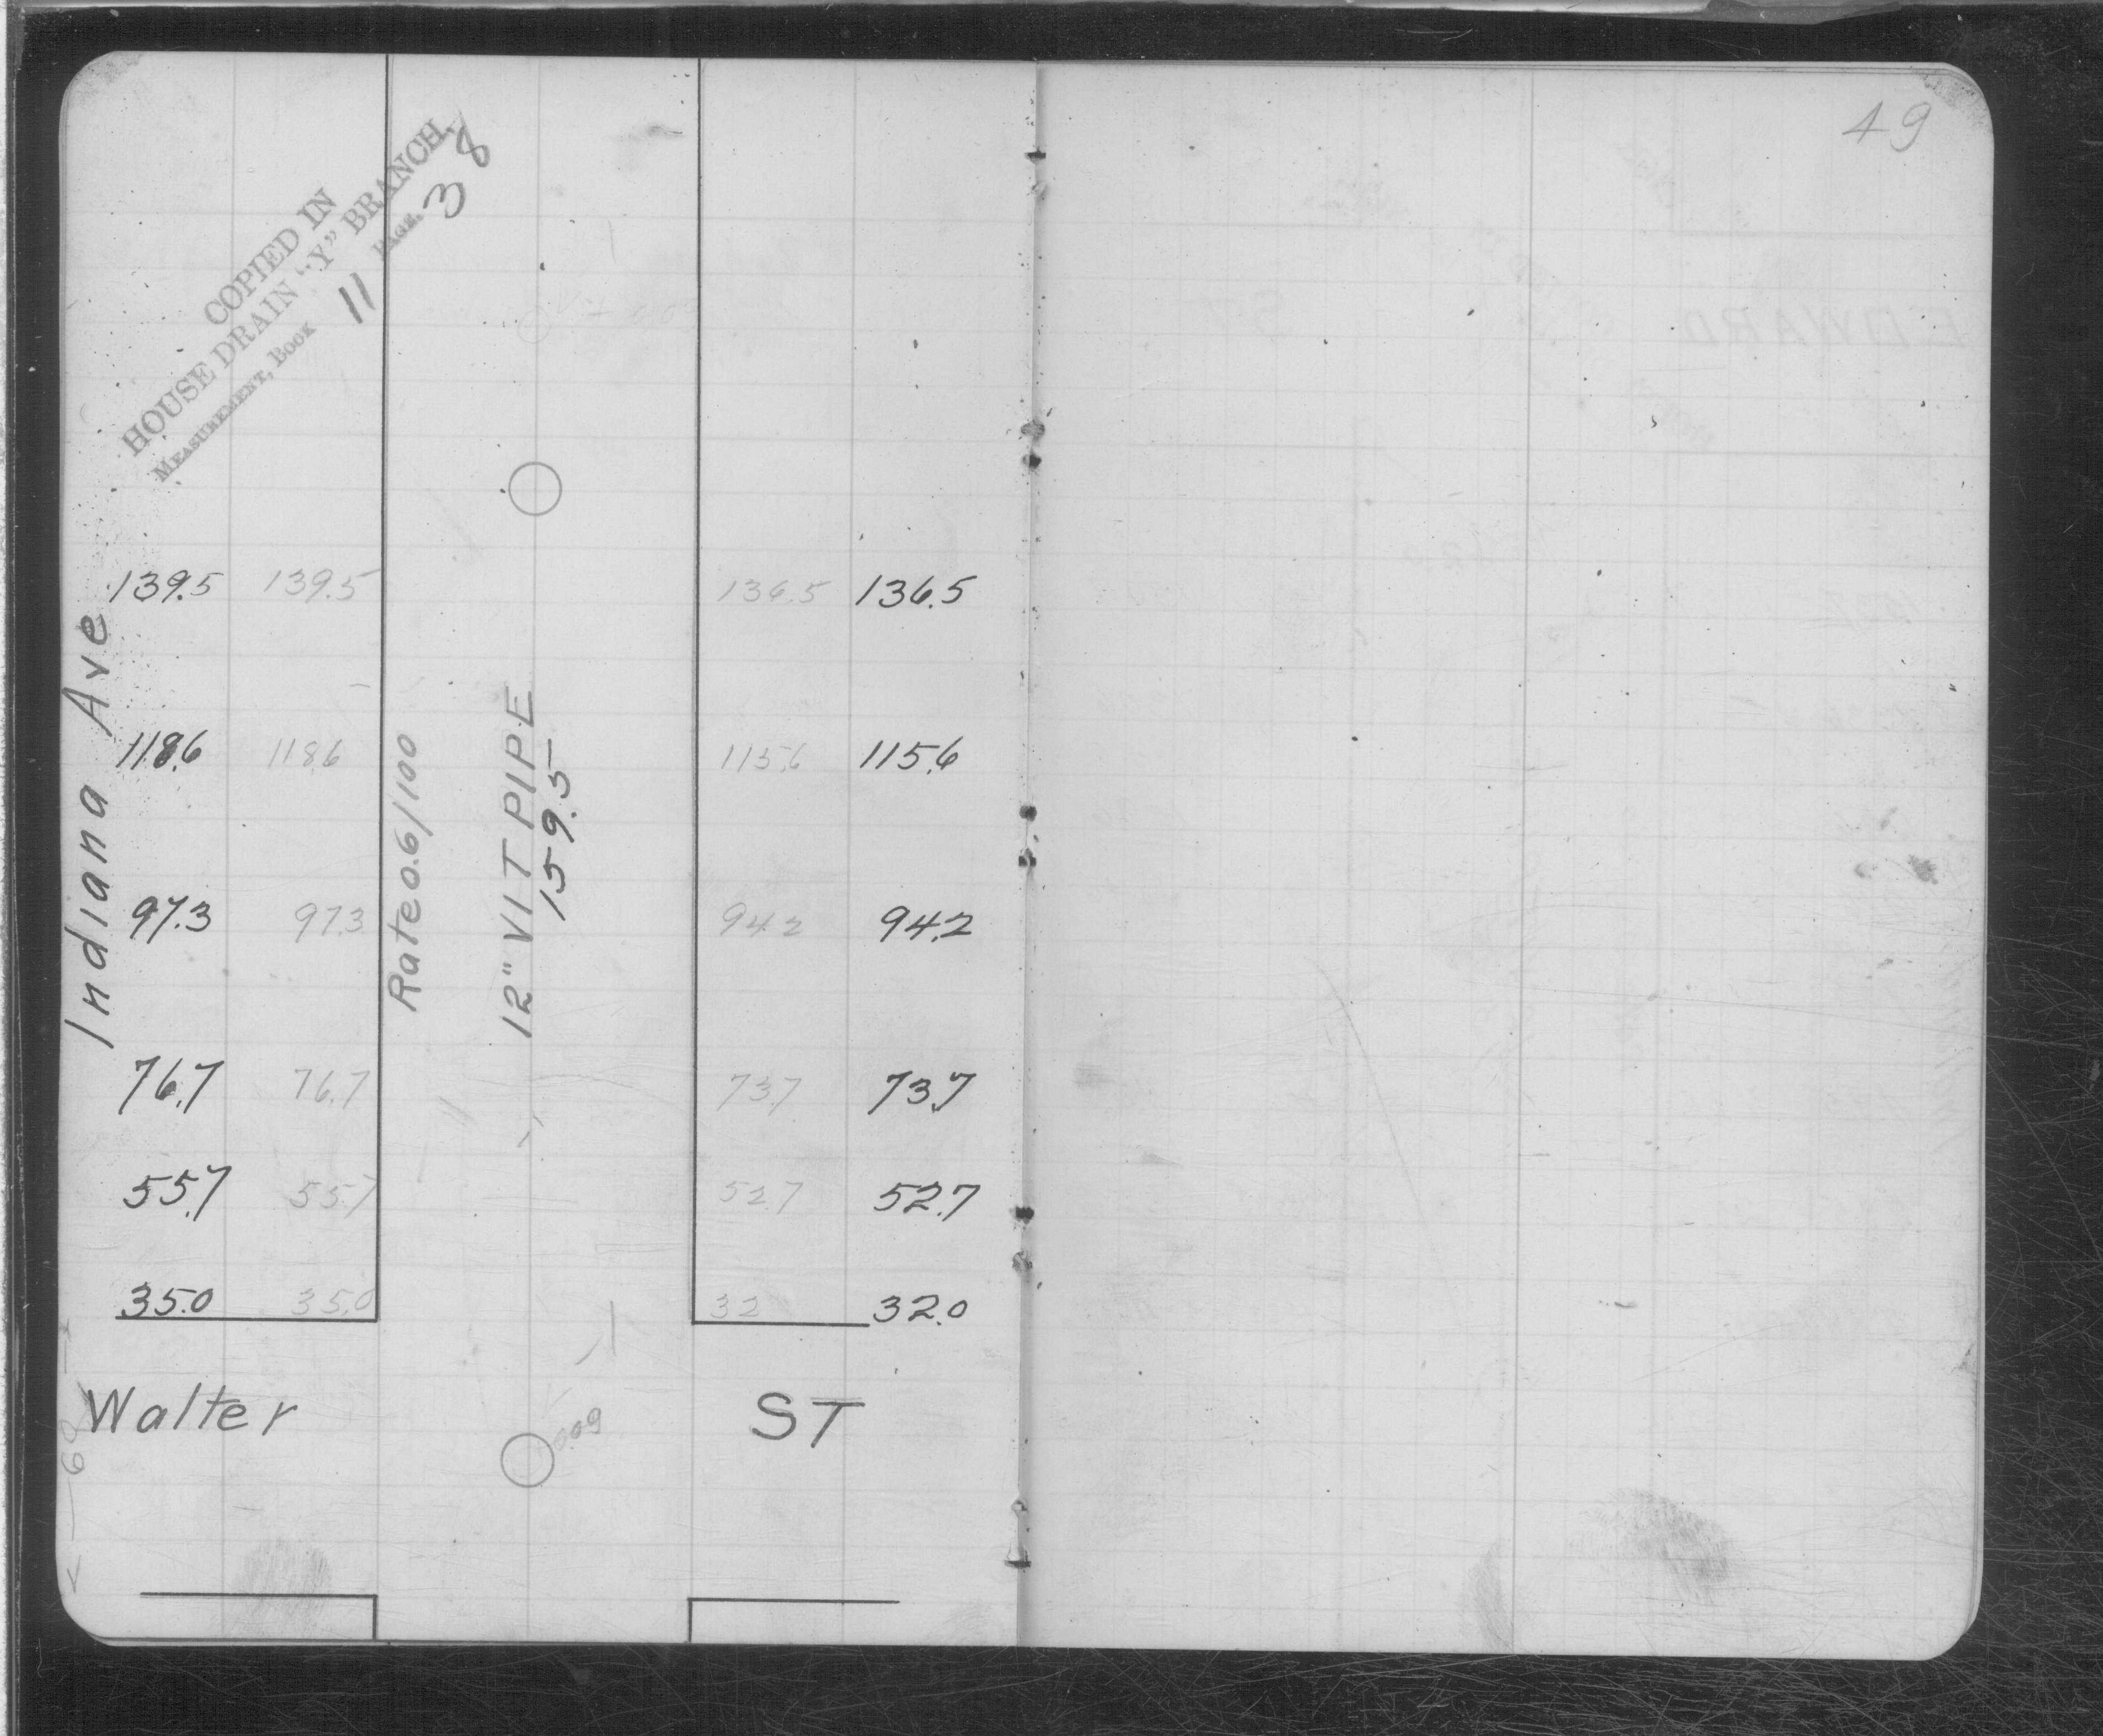 49
COPIED IN
HOUSE DRAIN "Y" BRANCH,
MEASUREMENT, BOOK 11 PAGE, 38
Indiana Ave
139.5 139.5 136.5 136.5
118.6 118.6 115.6 115.6
97.3 97.3 94.2 94.2
76.7 76.7 73.7 73.7
55.7 55.7 52.7 52.7
35.0 35.0 32 32.0
Rate 0.6/100
12" VIT PIPE
159.5
Walter ST
0.09
60